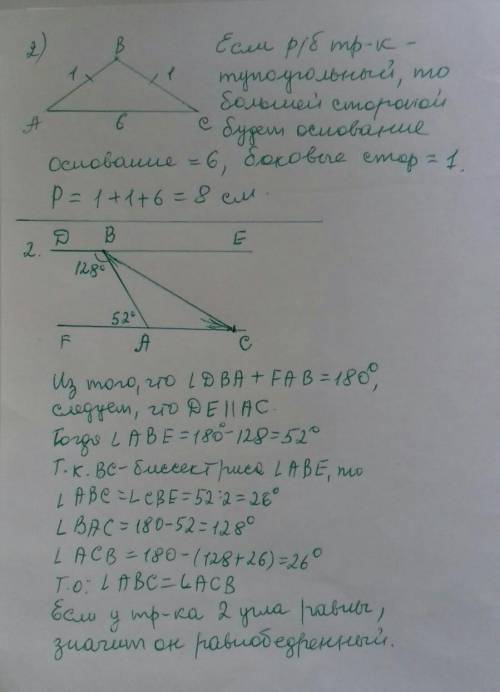 2)
B
1 1
A 6 C
Если р/б тр-к -
тупоугольный, то
большей стороной
будет основание
основание = 6, боковые стор = 1.
P = 1+1+6 = 8 см.
2.
D B E
128°
52°
F A C
Из того, что ∠DBA + FAB = 180°,
следует, что DE||AC.
Тогда ∠ABE = 180°-128 = 52°
Т.к. BC - биссектриса ∠ABE, то
∠ABC = ∠CBE = 52:2 = 26°
∠BAC = 180-52 = 128°
∠ACB = 180-(128+26) = 26°
Т.о: ∠ABC = ∠ACB
Если у тр-ка 2 угла равны,
значит он равнобедренный.